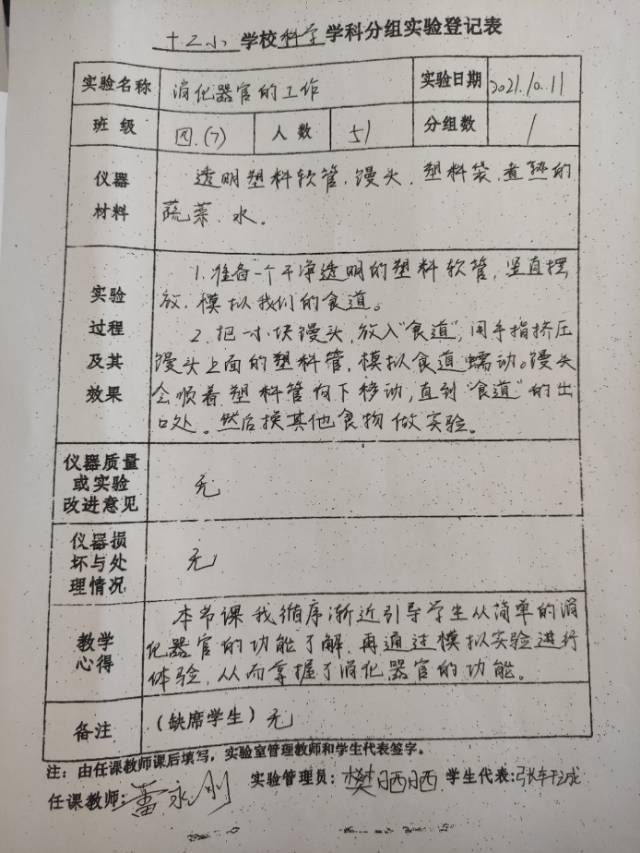 十二小学校科学学科分组实验登记表
实验名称 消化器官的工作 实验日期 2021.10.11
班级 四.(7) 人数 51 分组数 1
仪器材料 透明塑料软管.馒头.塑料袋.煮熟的
蔬菜.水.
实验过程及其效果 1.准备一个干净透明的塑料软管,竖直摆
放.模拟我们的食道。
2.把一小块馒头,放入“食道”,用手指挤压
馒头上面的塑料管,模拟食道蠕动。馒头
会顺着塑料管向下移动,直到“食道”的出
口处。然后换其他食物做实验。
仪器质量或实验改进意见 无
仪器损坏与处理情况 无
教学心得 本节课我循序渐近引导学生从简单的消
化器官的功能了解.再通过模拟实验进行
体验,从而掌握了消化器官的功能。
备注 (缺席学生)无
注:由任课教师课后填写,实验室管理教师和学生代表签字。
任课教师: 永刚 实验管理员:樊晒晒 学生代表:张